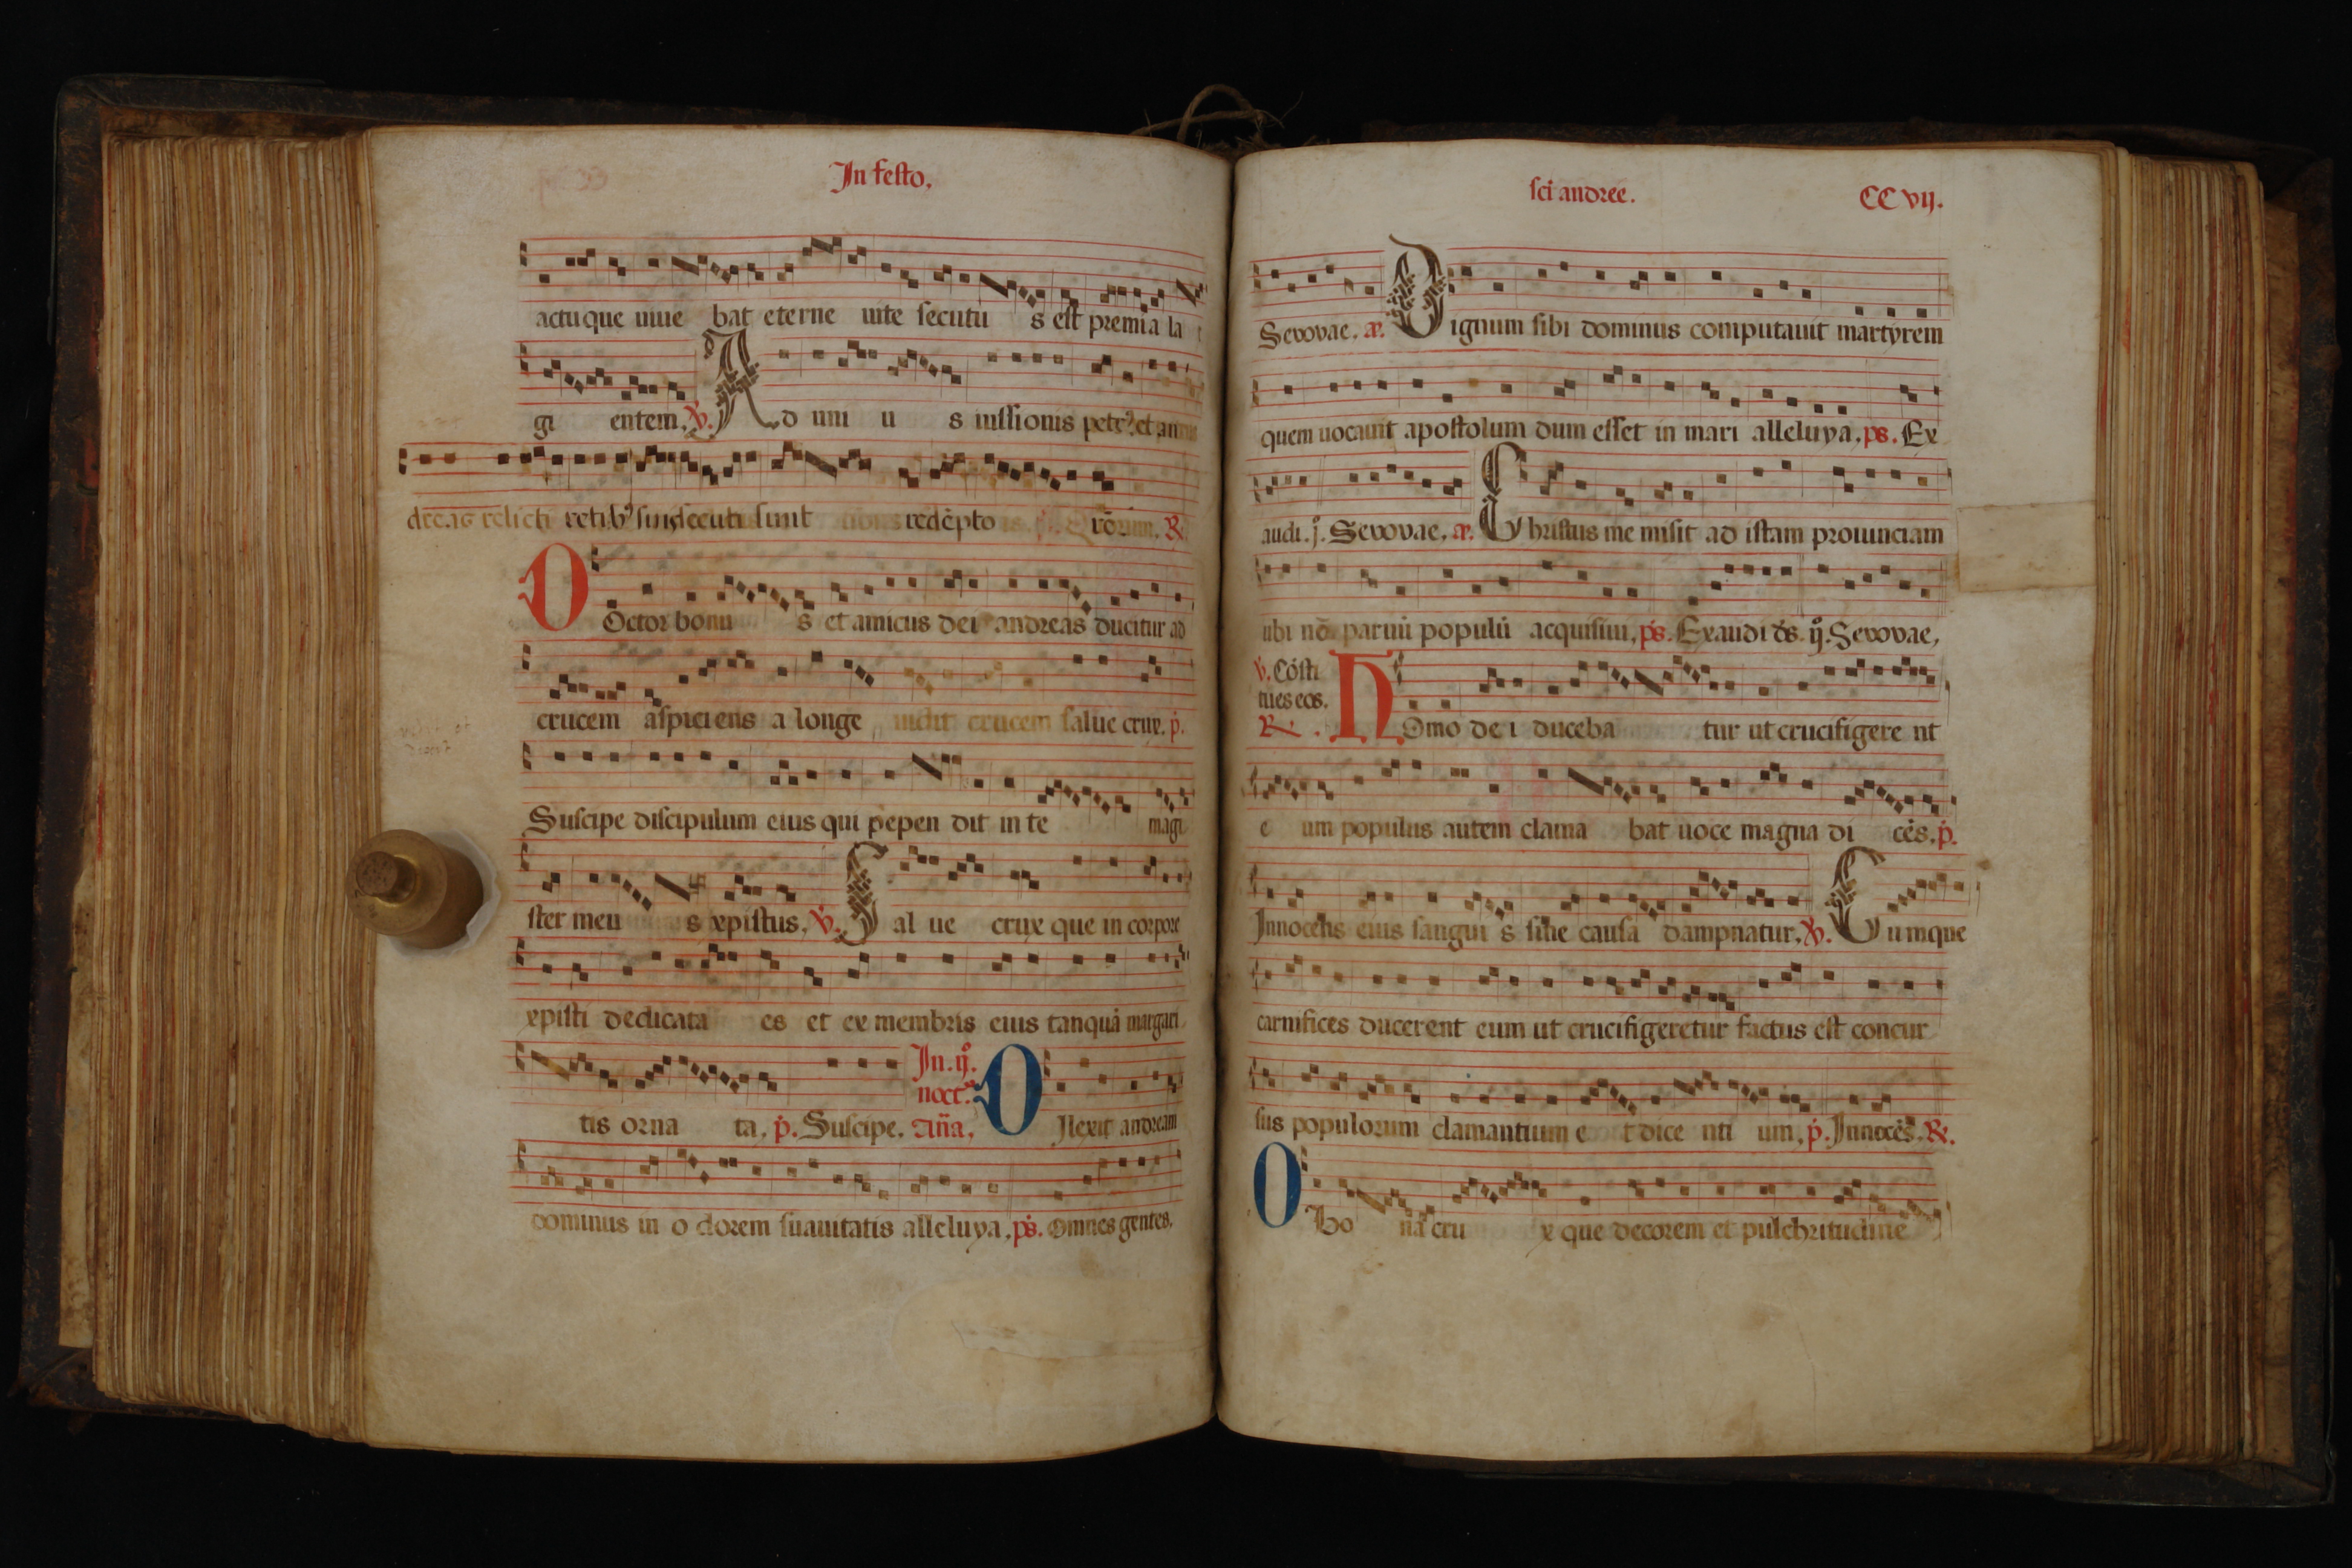 In festo,
actuque uiue bat eterne uite secutu s est premia la
gi entem, ℣. A d uni u s iussionis petr' et an
dreas relicti retib' secuti sunt redēpto ℟.
D Octor bonu s et amicus dei andreas ducitur ad
crucem aspiciens a longe uidit crucem salue crux. p̄.
Suscipe discipulum eius qui pepen dit in te magi
ster meu s xpistus, ℣. S al ue crux que in corpore
xpisti dedicata es et ex membris eius tanquā margari
In . ij°.
noct.
tis orna ta, p̄. Suscipe. añā, D Ilexit andream
dominus in o dorem suauitatis alleluya, ps. Omnes gentes.
sci andree. CC vij.
Sevovae. æ. D ignum sibi dominus computauit martyrem
quem uocauit apostolum dum esset in mari alleluya, ps. Ex
audi. j. Sevovae, æ. C hristus me misit ad istam prouinciam
ubi nō paruū populū acquisiui, ps. Exaudi ds. ij°. Sevovae,
℣. Cōsti
tues eos.
℟. H Omo de i duceba tur ut crucifigere nt
e um populus autem clama bat uoce magna di cēs. p̄.
Innocētis eius sangui s sine causa dampnatur, ℣. C umque
carnifices ducerent eum ut crucifigeretur factus est concur
sus populorum clamantium e t dice nti um, p̄. Innocēs. ℟.
O bo na cru x que decorem et pulchritudine